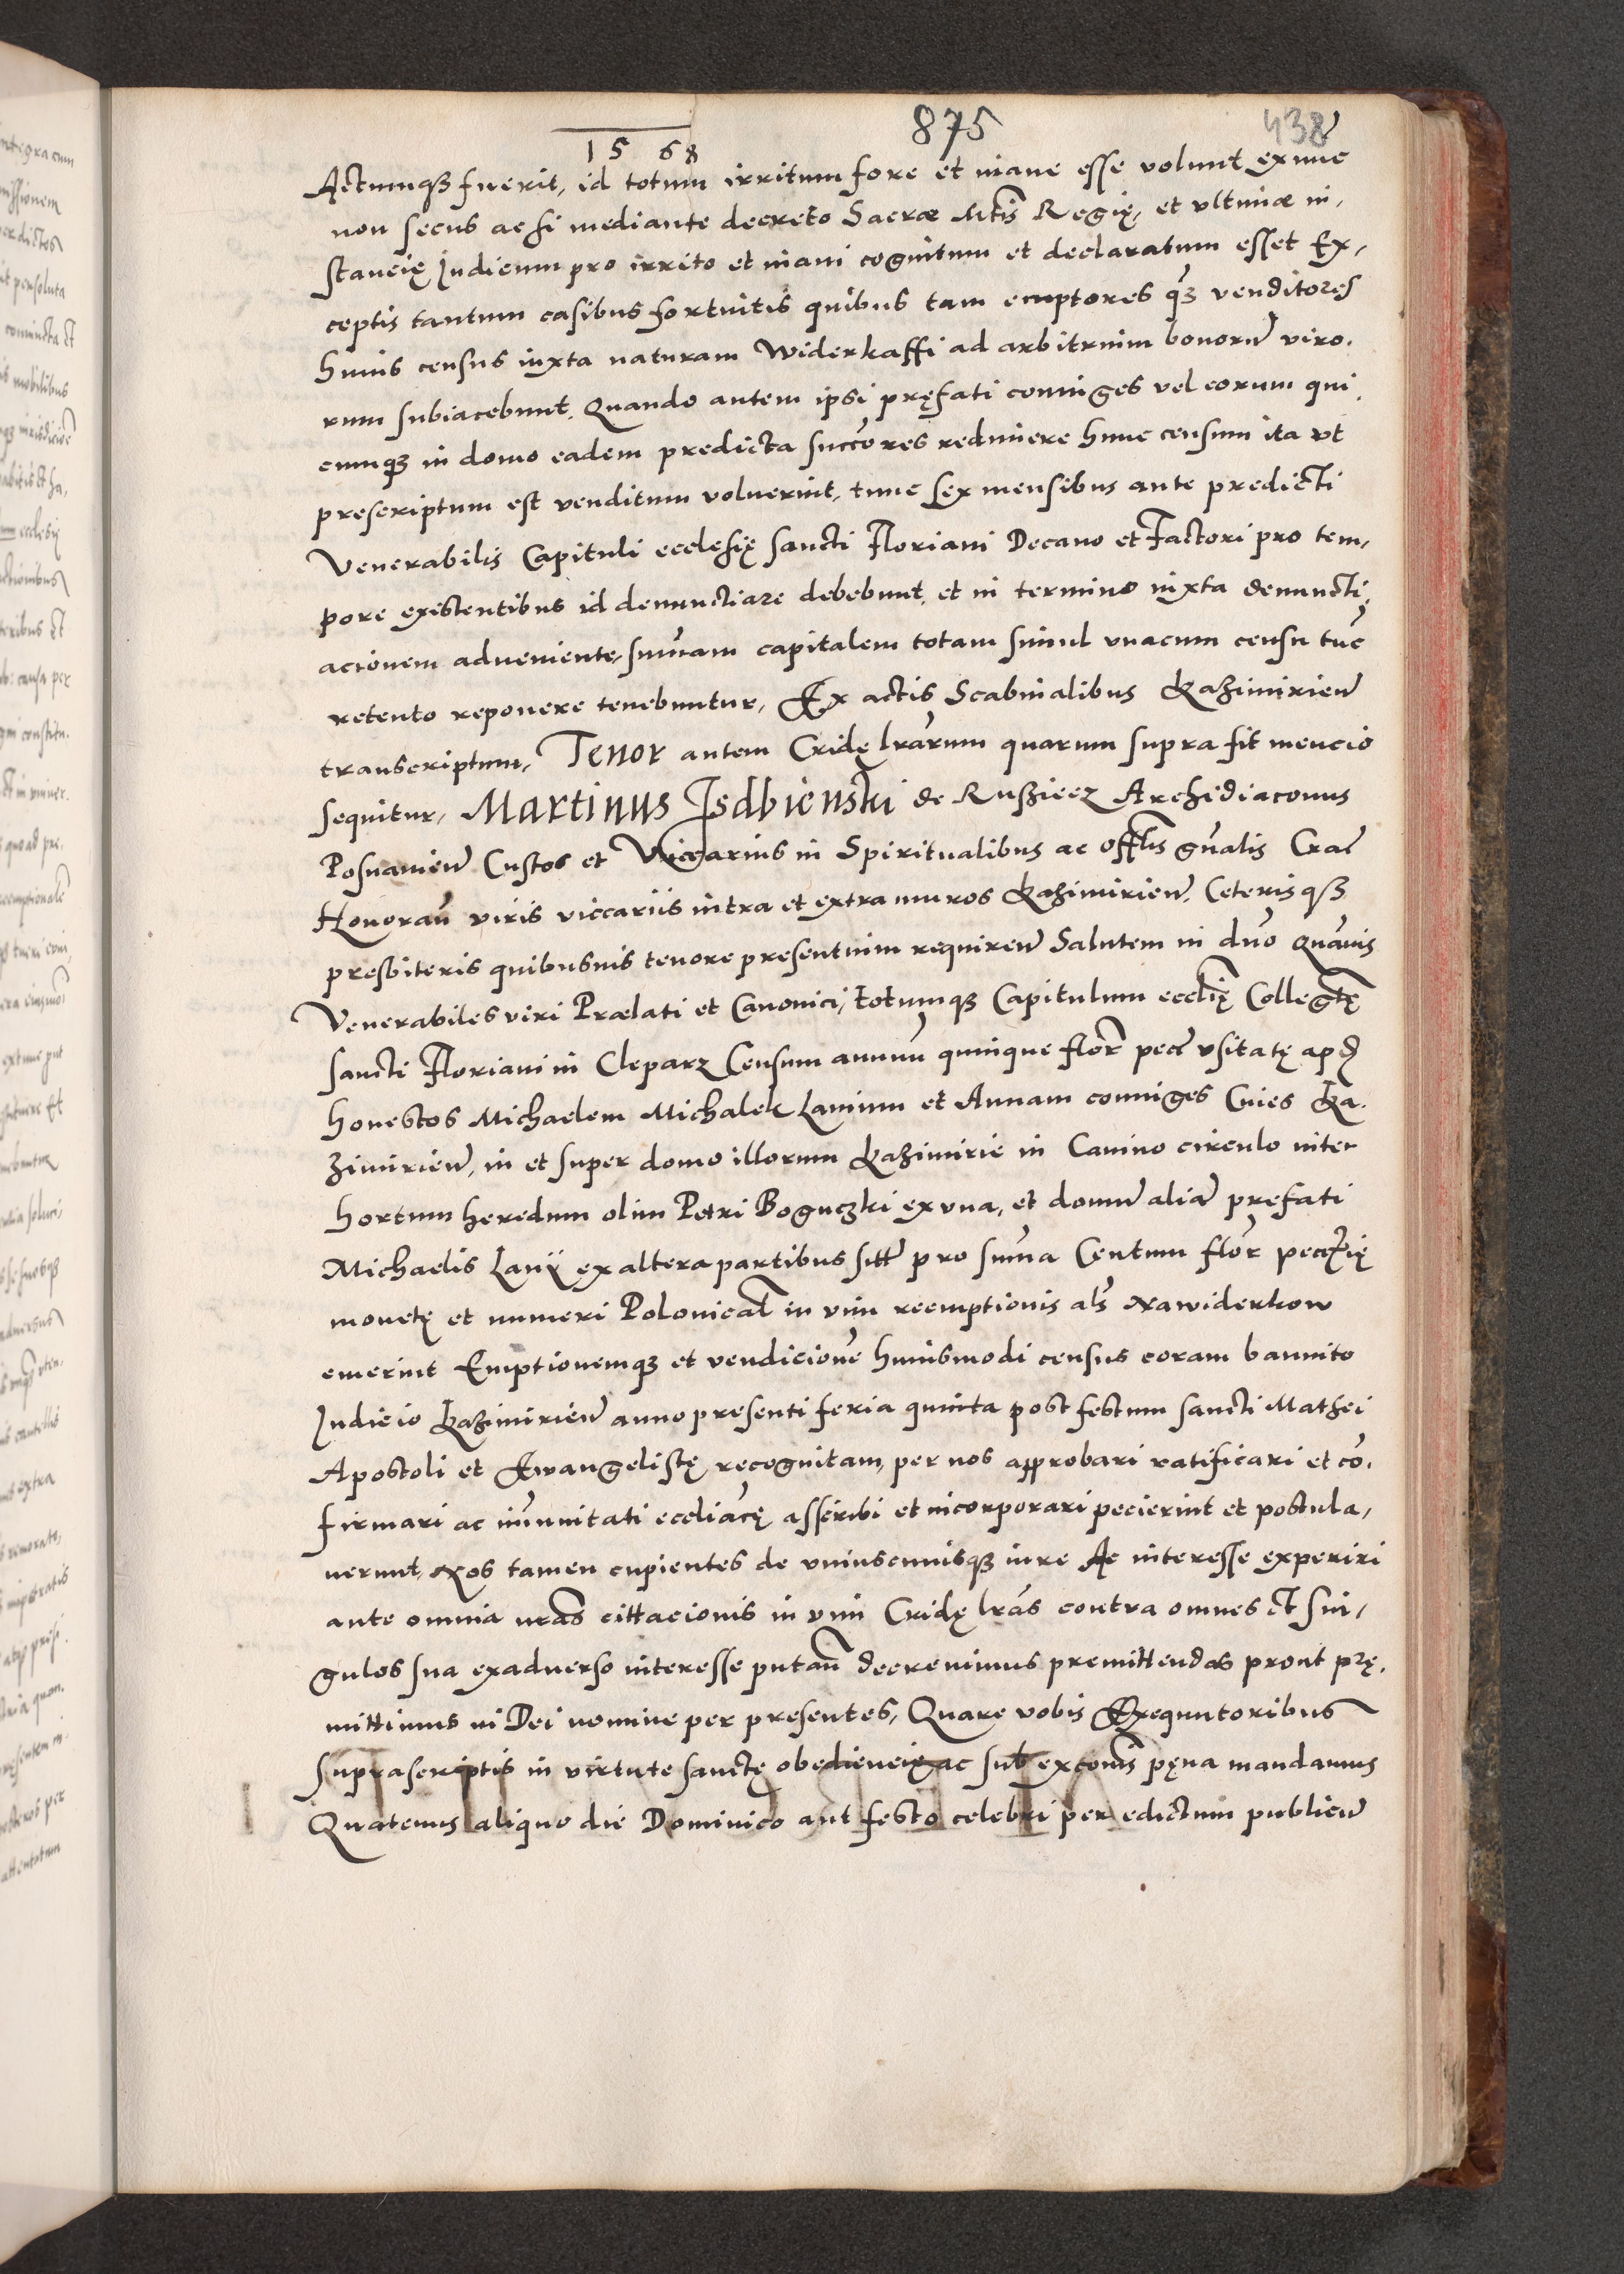 875
438
1568
Actumqȝ fuerit, id totum irritum fore et inane esse volunt ex nuc
non secus ac si mediante decreto Sacræ Mtis Regię, et vltimæ in,
stancię Iudicum pro irrito et inani cognitum et declaratum esset Ex,
ceptis tantum casibus fortuitis quibus tam emptores qȝ venditores
huius census iuxta naturam Widerkaffi ad arbitrium bonorū viro.
rum subiacebunt. Quando autem ipsi pręfati coniuges vel eorum qui
cumqȝ in domo eadem predicta succōres redimere hunc censum ita vt
prescriptum est venditum voluerint, tunc sex mensibus ante predicti
Venerabilis Capituli ecclesię sancti Floriani Decano et Factori pro tem,
pore existentibus id denunctiare debebunt, et in termino iuxta denuncti,
acionem adueniente, sum̄am capitalem totam simul vnacum censu tūc
retento reponere tenebuntur, Ex actis Scabinalibus Kazimirien̄
transcriptum, Tenor autem Cridę lrārum quarum supra fit mencio
sequitur, Martinus Isdbienski de Rusziecz Archidiaconus
Posnanien̄ Custos et Viccarius in Spiritualibus ac offlis gn̄alis Crac̄
Honoran̄ viris viccariis intra et extra muros Kazimirien̄. Ceterisqȝ
presbiteris quibusuis tenore presentium requiren̄ Salutem in dn̄o Quāuis
Venerabiles viri Prælati et Canonici, totumqȝ Capitulum eccl̄ię Collegtę
sancti Floriani in Cleparz Censum annuū quinque flor̄ pec̄ vsitatę apd̄
honestos Michaelem Michalek Lanium et Annam coniuges Ciues Ka.
zimirien̄, in et super domo illorum Kazimirie in Canino circulo inter
hortum heredum olim Petri Boguczki ex vna, et domū aliā prefati
Michaelis Lanÿ ex altera partibus sitt̄ pro sum̄a Centum flor̄ pec̄rię
monetę et numeri Polonical̄ in vim reemptionis als̄ nawiderkow
emerint Emptionemqȝ et vendicionē huiusmodi census coram bannito
Iudicio Kazimirien̄ anno presenti feria quinta post festum sancti Mathei
Apostoli et Ewangelistę recognitam, per nos approbari ratificari et cō.
firmari ac im̄unitati eccliacę asscribi et incorporari pecierint et postula,
uerunt, Nos tamen cupientes de vniuscuiusqȝ iure Ac interesse experiri
ante omnia nrās cittacionis in vim Cridę lrās contra omnes et sin,
gulos sua exaduerso interesse putan̄ decreuimus premittendas prout prę,
mittimus in Dei nomine per presentes, Quare vobis Exequutoribus
suprascriptis in virtute sanctę obediencię ac sub excōis pęna mandamus
Quatenus aliquo die Dominico aut festo celebri per edictum publicū